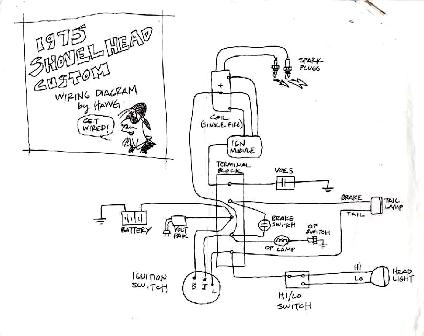 1975
SHOVEL HEAD
CUSTOM
WIRING DIAGRAM
by HAWG
GET
WIRED!
SPARK
PLUGS
+
COIL
(SINGLE FIRE)
IGN
MODULE
TERMINAL
BLOCK
VOES
BRAKE
TAIL
LAMP
TAIL
BATTERY
BRAKE
SWITCH
OP
SWITCH
OP LAMP
IGNITION
SWITCH
B I L
HI
LO
HEAD
LIGHT
HI/LO
SWITCH